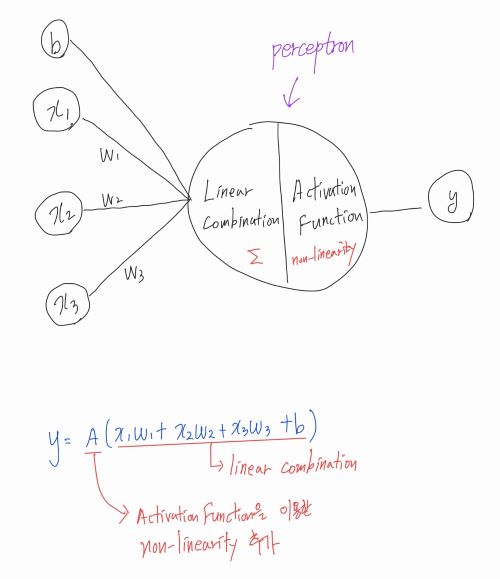 b
perceptron
x₁
w₁
x₂
w₂
Linear
Combination
Σ
Activation
Function
non-linearity
y
w₃
x₃
y = A(x₁w₁ + x₂w₂ + x₃w₃ + b)
linear combination
Activation Function을 이용한
non-linearity 추가